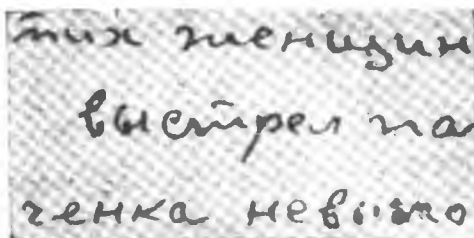 тих женщин
выстрел па
ченка невыно